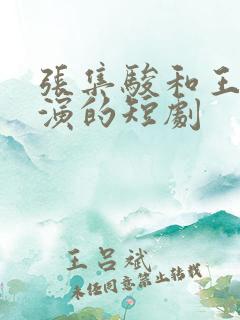 張集駿和王
演的短劇
王呂斌
未经同意禁止转载